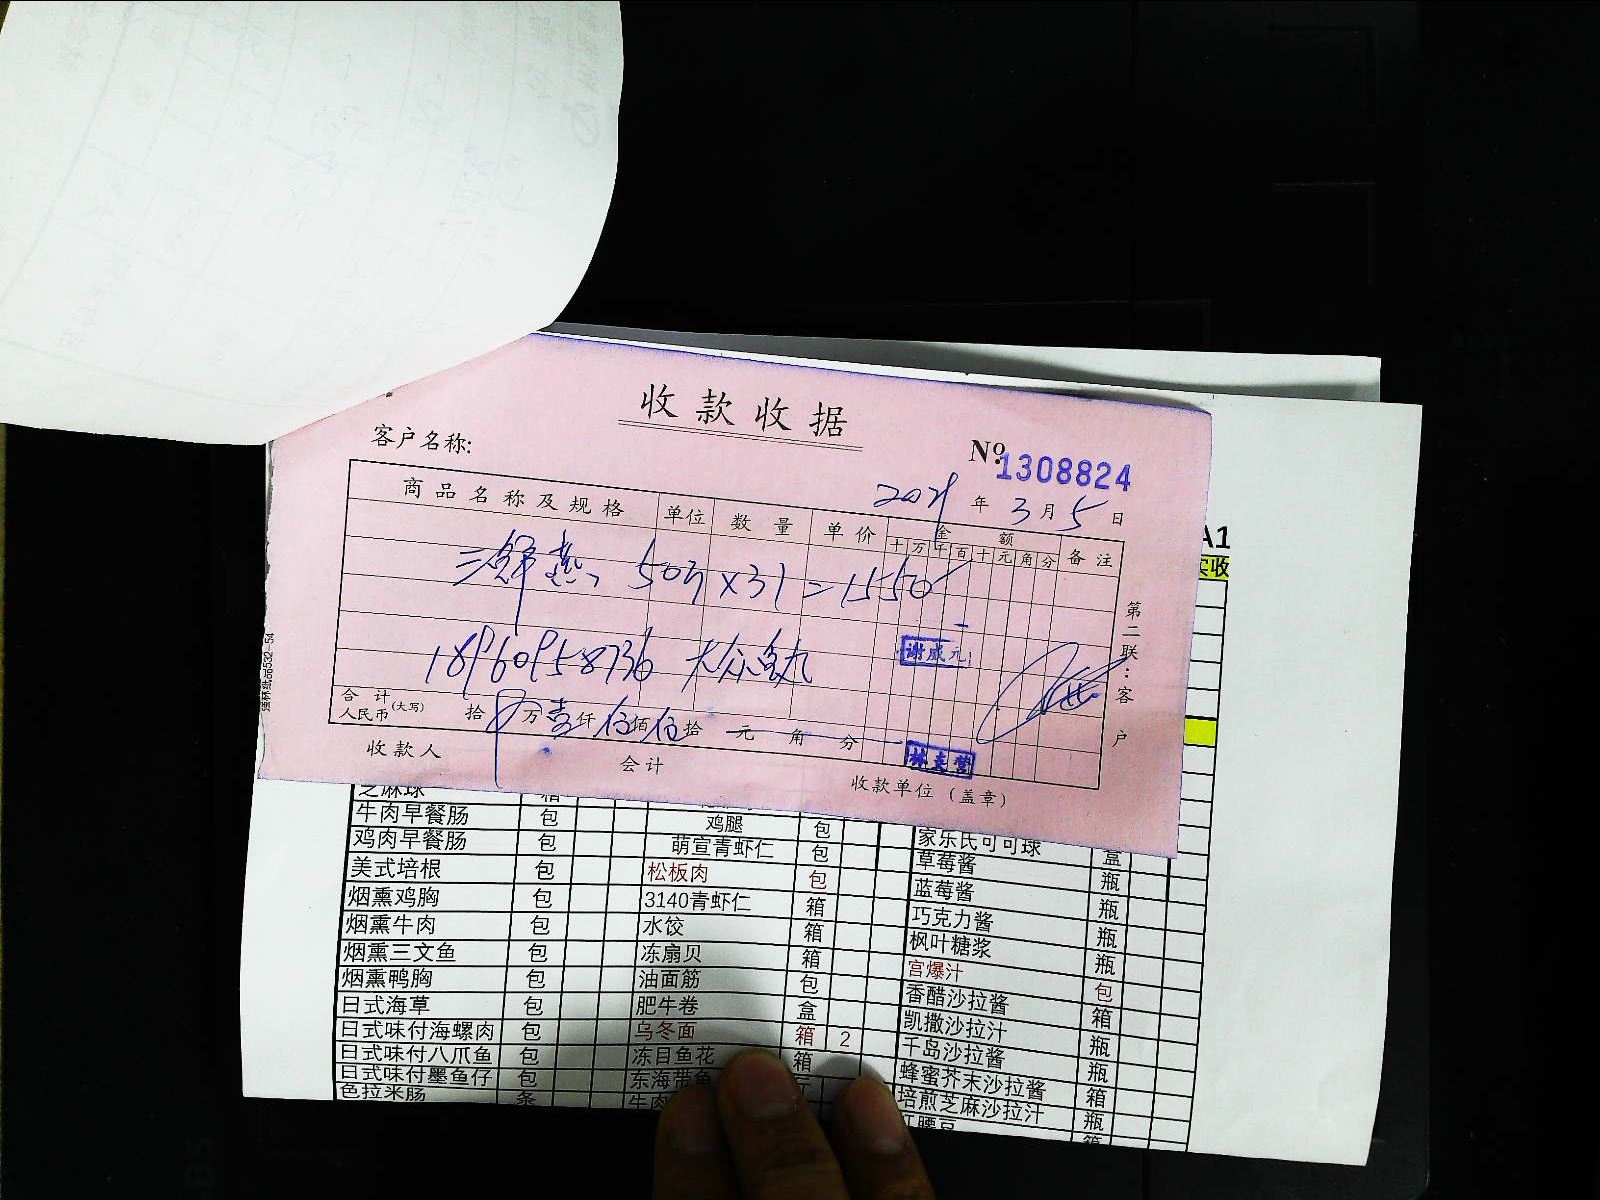 收款收据
客户名称:
No. 1308824
2021 年 3 月 5 日
商品名称及规格 单位 数量 单价 金额 备注
十 万 千 百 十 元 角 分
三鲜燕 50斤 x31=1550
18960958736 大众鱼丸
谢威元
合计 人民币 (大写) 拾 万 壹 仟 伍 佰 伍 拾 元 角 分
收款人 会计 收款单位（盖章）
第二联:客户
A1
实收
芝麻球 箱
牛肉早餐肠 包 鸡腿 包 家乐氏可可球 盒
鸡肉早餐肠 包 萌宣青虾仁 包 草莓酱 瓶
美式培根 包 松板肉 包 蓝莓酱 瓶
烟熏鸡胸 包 3140青虾仁 箱 巧克力酱 瓶
烟熏牛肉 包 水饺 箱 枫叶糖浆 瓶
烟熏三文鱼 包 冻扇贝 箱 宫爆汁 包
烟熏鸭胸 包 油面筋 包 香醋沙拉酱 箱
日式海草 包 肥牛卷 盒 凯撒沙拉汁 瓶
日式味付海螺肉 包 乌冬面 箱 2 千岛沙拉酱 瓶
日式味付八爪鱼 包 冻目鱼花 箱 蜂蜜芥末沙拉酱 箱
日式味付墨鱼仔 包 东海带鱼 培煎芝麻沙拉汁 瓶
色拉米肠 条 牛肉 红腰豆 箱